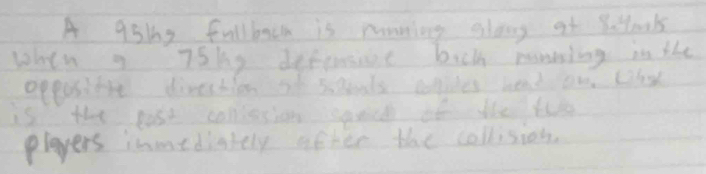 A 95kg fullback is running along at 8.4m/s
when a 75kg defensive back running in the
opposite direction at collides head on. What
is the post collission speed of the two
players immediately after the collision.